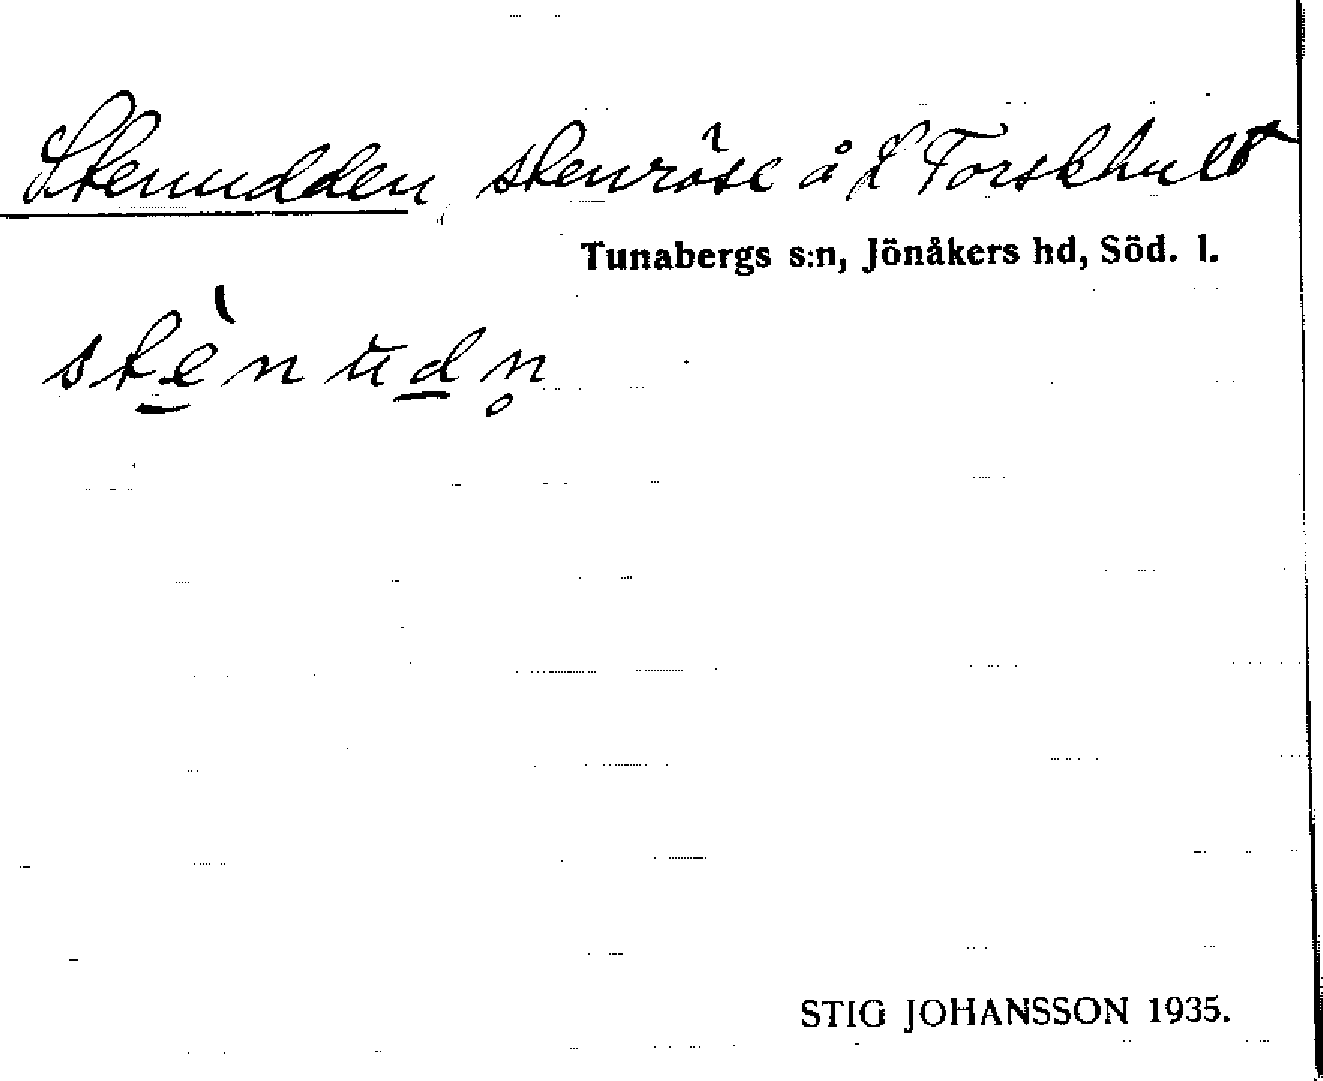 Stenudden, stenröse å L Torskhult
Tunabergs s:n, Jönåkers hd, Söd. l.
stè̱n ud̲n̥
STIG JOHANSSON 1935.